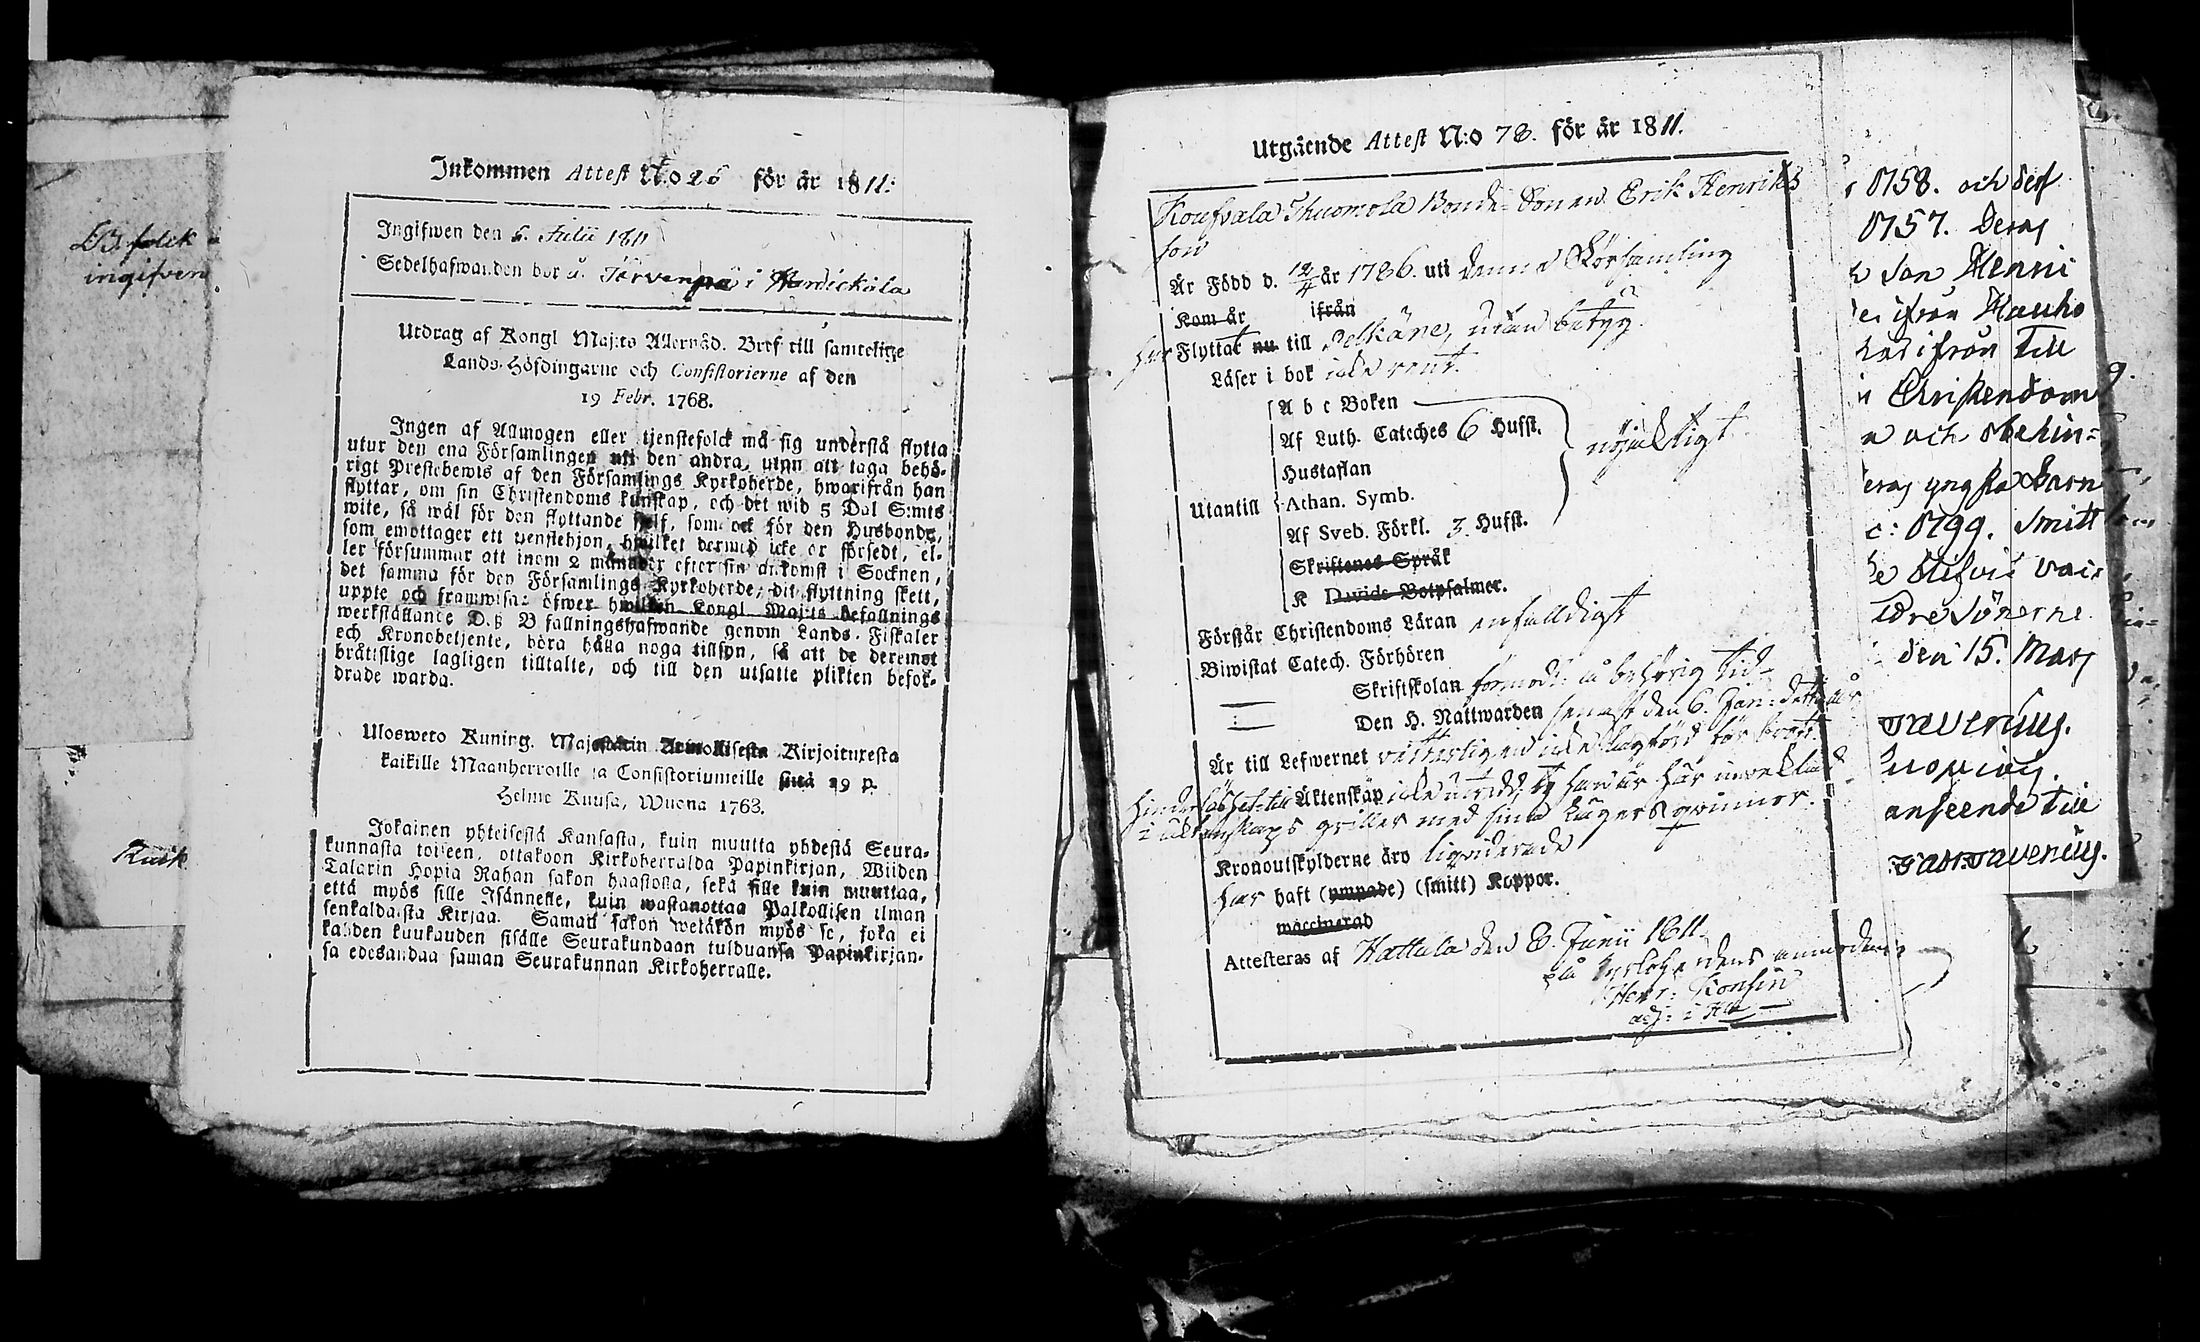 B. folck
ingifven
Rusk
Inkommen Attest N:o 26 för år 1811:
Ingifwen den 6. Julii 1811
Sedelhafwanden bor å. Järvenpä i
Utdrag af Kongl Maj:ts Allernåd. Bref till samtelige
Lands-Höfdingarne och Consistorierne af den
19 Febr. 1768.
Ingen af Allmogen eller tjenstefolck må sig understå flytta
utur den ena Församlingen uti den andra, utan att taga behö-
rigt Prestebewis af den Församlings Kyrkoherde, hwarifrån han
flyttar, om sin Christendoms kunskap, och det wid 5 Dal S:mts
wite, så wäl för den flyttande sjelf, som ock för den Husbonde,
som emottager ett tjenstehjon, hwilket dermed icke är försedt, el-
ler försummar att inom 2 månader efter sin ankomst i Socknen,
det samma för den Församlings Kyrkoherde, dit flyttning skett,
uppte och framwisa: öfwer hwilken Kongl Maj:ts befallnings
werkställande D. ß Bfallningshafwande genom Lands-Fiskaler
och Kronobetjente, böra hålla noga tillsyn, så att de deremot
bråttslige lagligen tilltalte, och till den utsatte plikten befor-
drade warda.
Ulosweto Kuning. Majestätin Armollisesta Kirjoituxesta
kaikille Maanherroille ja Consistoriumeille siitä 19 p.
Helme Kuusa, Wuona 1763.
Jokainen yhteisestä Kansasta, kuin muutta yhdestä Seura-
kunnasta toiseen, ottakoon Kirkoherralda Papinkirjan, Wiiden
Talarin Hopia Rahan sakon haastolla, sekä sille kuin muuttaa,
että myös sille Isännelle, kuin wastanottaa Palkollisen ilman
senkaldaista Kirjaa. Saman sakon wetäkön myös se, joka ei
kahden kuukauden sisälle Seurakundaan tulduansa Papinkirjan-
sa edesandaa saman Seurakunnan Kirkoherralle.
Utgående Attest N:o 78. för år 1811.
Koufvala Thuomola Bonde-Sonen Erik Henriks
son
Är Född d. 12/4 år 1786. uti denna Församling
Kom år ifrån
har Flyttat nu till Pelkäne, utan betyg.
Läser i bok icke rent.
A b c Boken
Af Luth. Cateches 6 Hufst.
Hustaflan
nöjaktigt
Utantill Athan. Symb.
Af Sveb. Förkl. 3. Hufst.
Skriftenes Språk
K Davids Botpsalmer.
Förstår Christendoms Läran enfalldigt
Biwistat Catech. Förhören
Skriftskolan förmodl: å behörig tid
Den H. Nattwarden senast den 6. Jan: detta år
Är till Lefwernet vitterligen icke lagförd för brott.
Hinderlöshet till Äktenskap icke utredd, ty han är här invecklad
i äktenskaps griller med sina Lägersqvinnor.
Kronoutskylderne äro liqviderade
har haft (ympade) (smitt) Koppor.
vaccinerad
Attesteras af Hattula den 8. Junii 1811.
på Kyrkoherdens anmodan
Henr: Konsin
adj: i Htla
1758. och dess
1757. Deras
Son Henri
ifrån Hauho
ifrån till
Christendom
och obehin-
yngsta Barn
1799. Smitt
Söner ne
den 15. Mars
anseende till